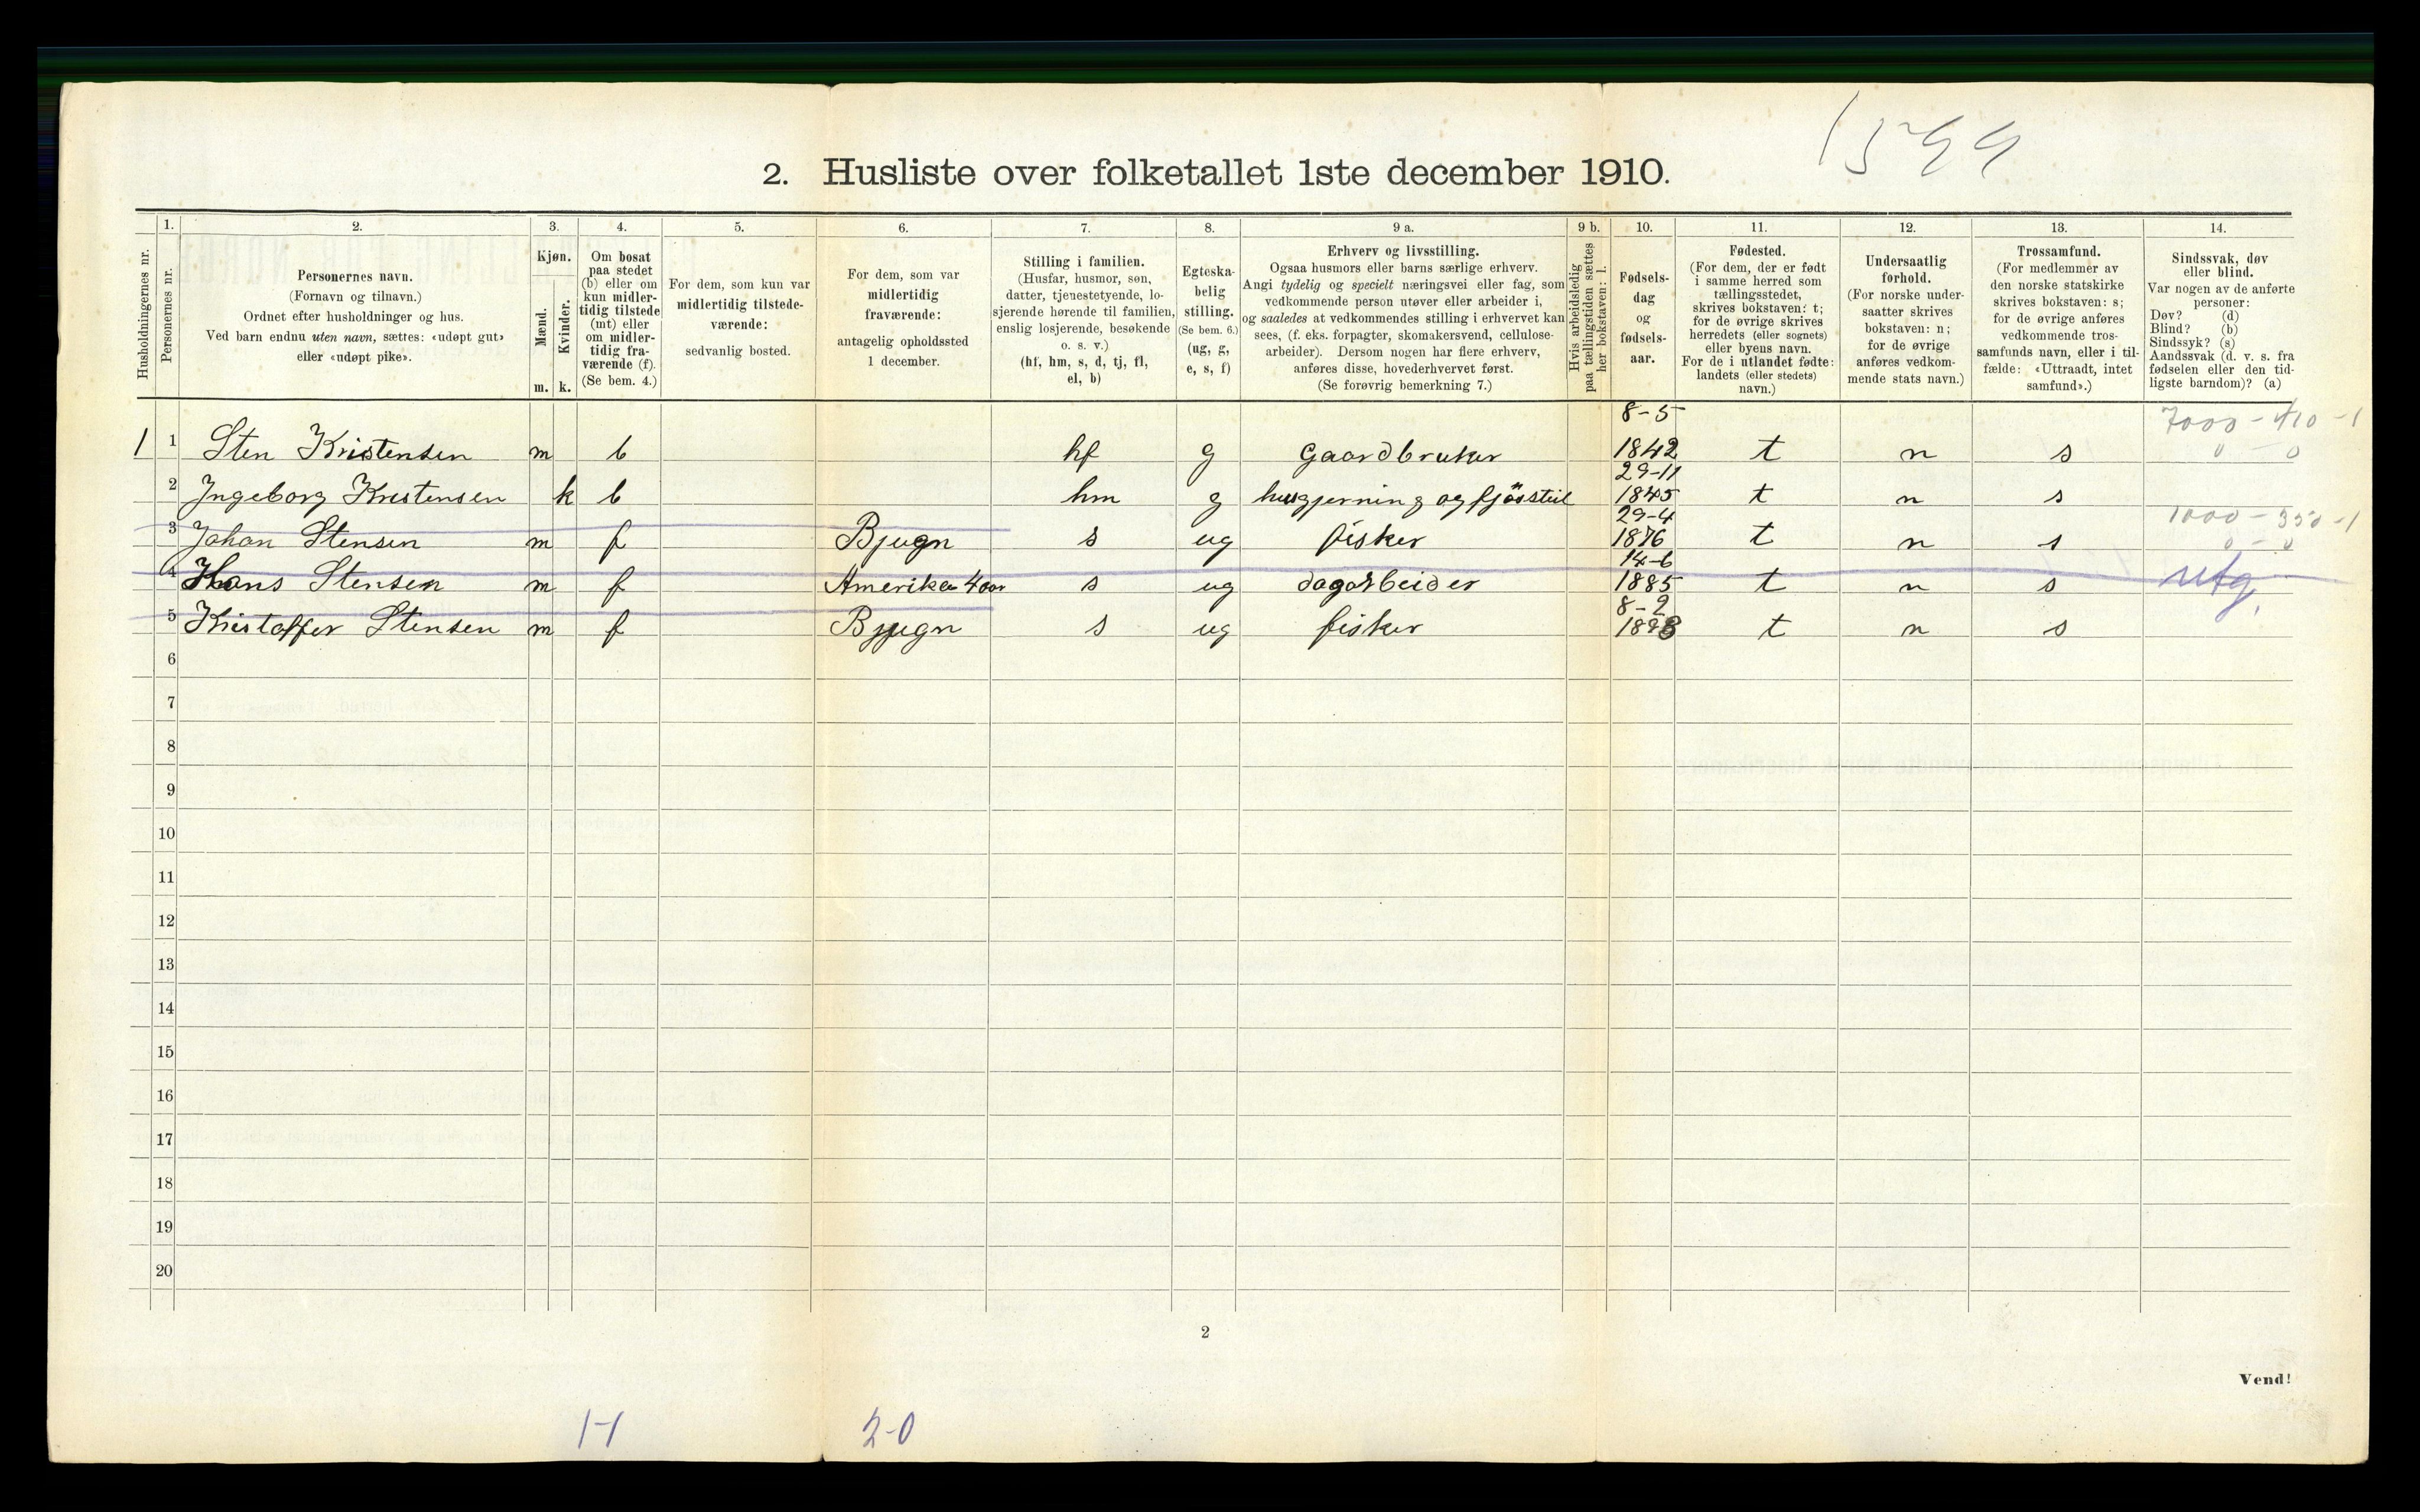 1599
2. Husliste over folketallet 1ste december 1910.
Husholdningernes nr.
1.
Personernes nr.
2.
Personernes navn.
(Fornavn og tilnavn.)
Ordnet efter husholdninger og hus.
Ved barn endnu uten navn, sættes: «udøpt gut»
eller «udøpt pike».
3.
Kjøn.
Mænd.
Kvinder.
m. k.
4.
Om bosat
paa stedet
(b) eller om
kun midler-
tidig tilstede
(mt) eller
om midler-
tidig fra-
værende (f).
(Se bem. 4.)
5.
For dem, som kun var
midlertidig tilstede-
værende:
sedvanlig bosted.
6.
For dem, som var
midlertidig
fraværende:
antagelig opholdssted
1 december.
7.
Stilling i familien.
(Husfar, husmor, søn,
datter, tjenestetyende, lo-
sjerende hørende til familien,
enslig losjerende, besøkende
o. s. v.)
(hf, hm, s, d, tj, fl,
el, b)
8.
Egteska-
belig
stilling.
(Se bem. 6.)
(ug, g,
e, s, f)
9 a.
Erhverv og livsstilling.
Ogsaa husmors eller barns særlige erhverv.
Angi tydelig og specielt næringsvei eller fag, som
vedkommende person utøver eller arbeider i,
og saaledes at vedkommendes stilling i erhvervet kan
sees, (f. eks. forpagter, skomakersvend, cellulose-
arbeider). Dersom nogen har flere erhverv,
anføres disse, hovederhvervet først.
(Se forøvrig bemerkning 7.)
9 b.
Hvis arbeidsledig
paa tællingstiden sættes
her bokstaven: l.
10.
Fødsels-
dag
og
fødsels-
aar.
11.
Fødested.
(For dem, der er født
i samme herred som
tællingsstedet,
skrives bokstaven: t;
for de øvrige skrives
herredets (eller sognets)
eller byens navn.
For de i utlandet fødte:
landets (eller stedets)
navn.)
12.
Undersaatlig
forhold.
(For norske under-
saatter skrives
bokstaven: n;
for de øvrige
anføres vedkom-
mende stats navn.)
13.
Trossamfund.
(For medlemmer av
den norske statskirke
skrives bokstaven: s;
for de øvrige anføres
vedkommende tros-
samfunds navn, eller i til-
fælde: «Uttraadt, intet
samfund».)
14.
Sindssvak, døv
eller blind.
Var nogen av de anførte
personer:
Døv? (d)
Blind? (b)
Sindssyk? (s)
Aandssvak (d. v. s. fra
fødselen eller den tid-
ligste barndom)? (a)
8-5 7000-410-1
1 1 Sten Kristensen m b hf g Gaardbruker 1842 t n s 0 0
29-11
2 Ingeborg Kristensen k b hm g husgjerning og fjösstel 1845 t n s
29-4 1000-550-1
3 Johan Stensen m f Bjugn s ug fisker 1876 t n s 0-0
14-6
4 Hans Stensen m f Amerika 4 aar s ug dagarbeider 1885 t n s utg.
8-2
5 Kristoffer Stensen m f Bjugn s ug fisker t n s
6
7
8
9
10
11
12
13
14
15
16
17
18
19
20
2
Vend!
1-1 2-0